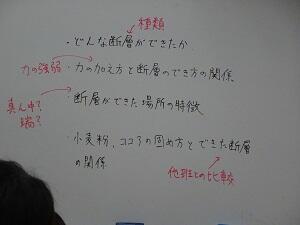 種類
・どんな断層ができたか
力の強弱
・力の加え方と断層のでき方の関係
真ん中?
端?
・断層ができた場所の特徴
・小麦粉、ココアの固め方とできた断層
の関係
他班との比較